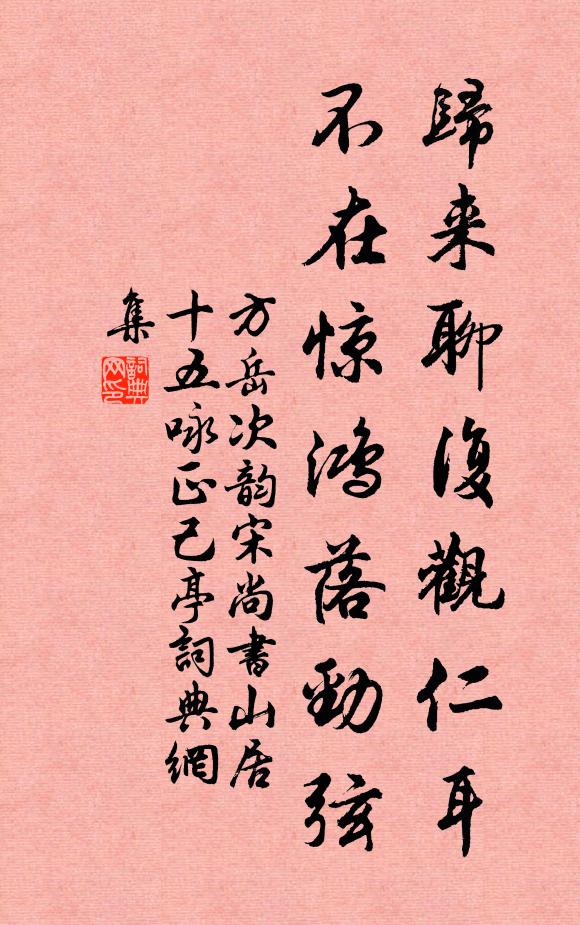 歸来聊復觀仁耳
不在惊鴻落勁弦
方岳次韵宋尚書山居
十五咏正己亭詞典網
集
詞典
网印